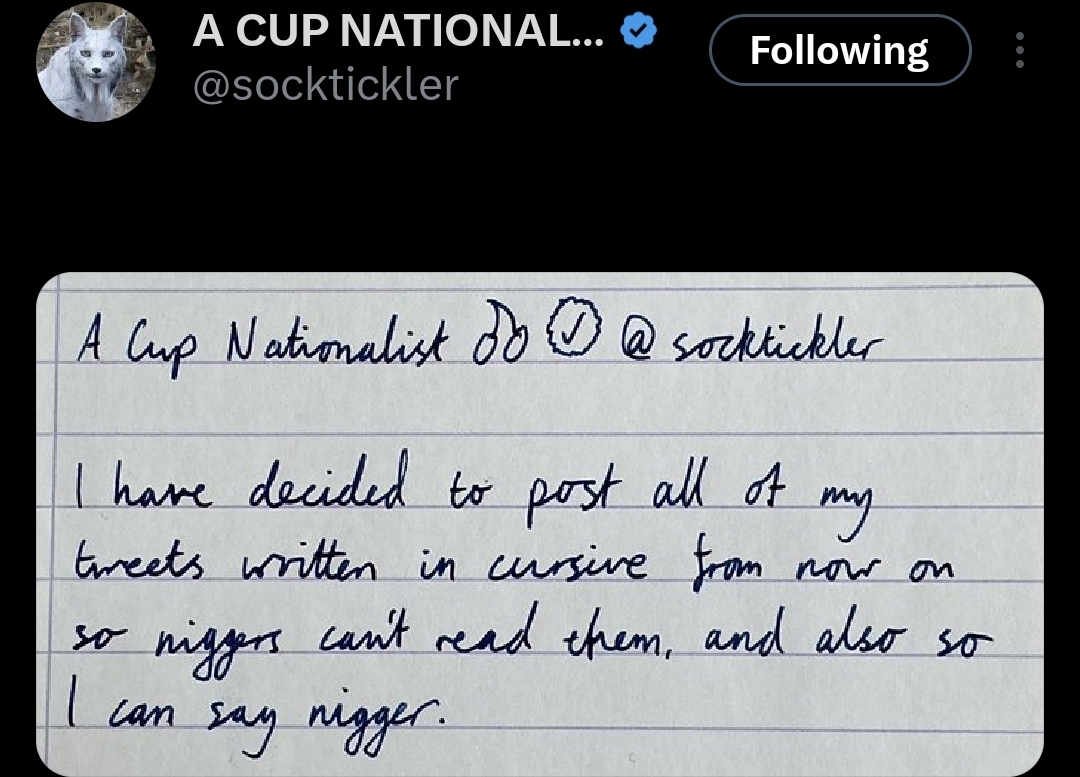 A CUP NATIONAL...
@socktickler
Following
A Cup Nationalist @socktickler
I have decided to post all of my
tweets written in cursive from now on
so niggers can't read them, and also so
I can say nigger.